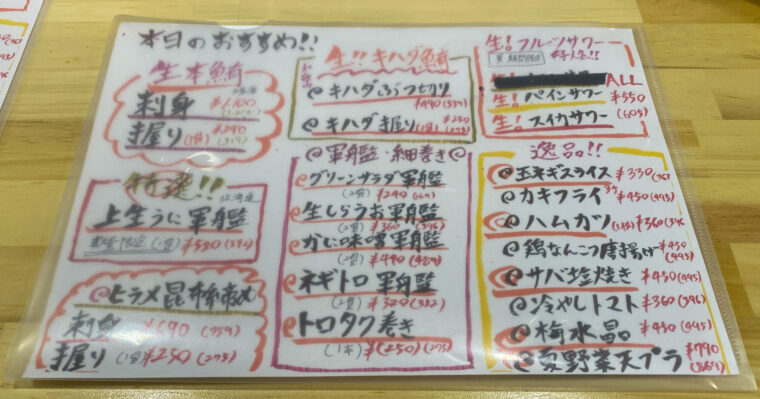 本日のおすすめ!!
生本鮪
刺身 ¥1,100
握り(1貫) ¥290
(319)
特選!!
北海道
上生うに軍艦
数量限定(1貫) ¥550
ヒラメ昆布〆
刺身 ¥690 (759)
握り(1貫) ¥250 (275)
生!! キハダ鮪
キハダぶつ切り
¥490 (539)
キハダ握り(2貫) ¥250
(275)
軍艦・細巻き
グリーンサラダ軍艦
(2貫) ¥290
生しらうお軍艦
(2貫) ¥360 (396)
かに味噌軍艦
(2貫) ¥440 (484)
ネギトロ軍艦
(2貫) ¥320 (352)
トロタク巻き
(1本) ¥(250) (275)
生!フルーツサワー
夏 期間限定
ALL
生!パインサワー ¥550
生!スイカサワー (605)
逸品!!
玉ネギスライス ¥330
カキフライ ¥450 (495)
ハムカツ ¥360
鶏なんこつ唐揚げ ¥450
(495)
サバ塩焼き ¥450 (495)
冷やしトマト ¥360 (396)
梅水晶 ¥450 (495)
夏野菜天プラ ¥790
(869)